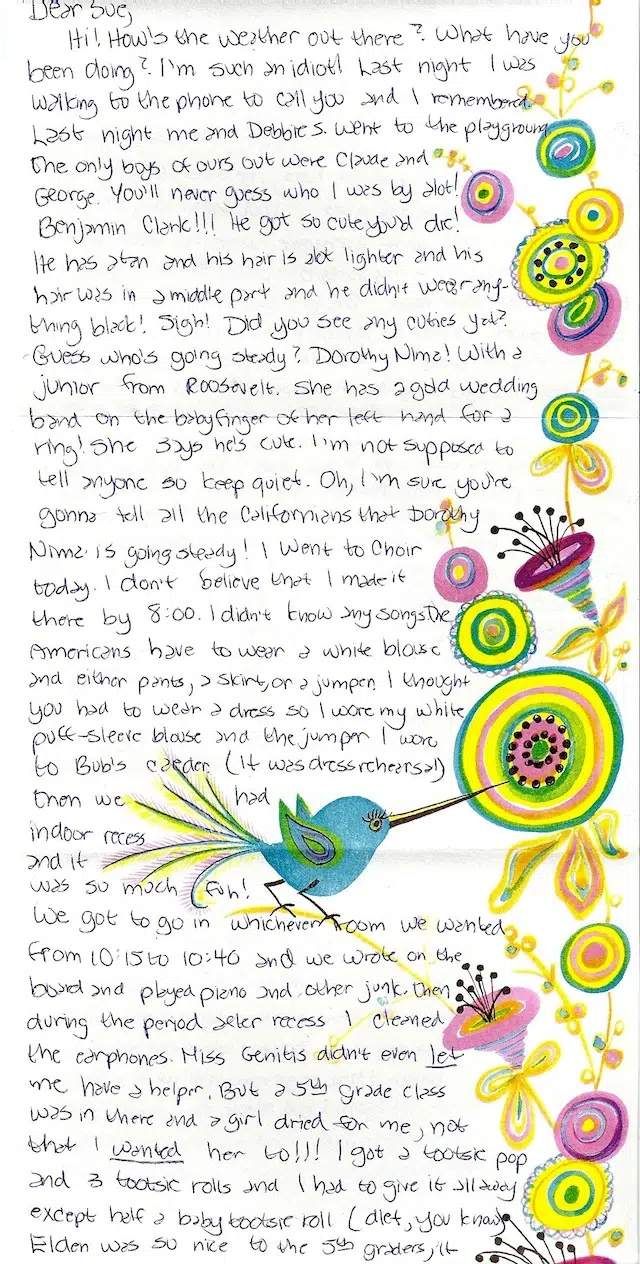 Dear Sue,
Hi! How's the weather out there? What have you
been doing? I'm such an idiot! Last night I was
walking to the phone to call you and I remembered.
Last night me and Debbie S. went to the playground
The only boys of ours out were Claude and
George. You'll never guess who I was by alot!
Benjamin Clark!!! He got so cute you'd die!
He has a tan and his hair is alot lighter and his
hair was in a middle part and he didn't wear any-
thing black! Sigh! Did you see any cuties yet?
Guess who's going steady? Dorothy Nima! With a
junior from Roosevelt. She has a gold wedding
band on the baby finger of her left hand for a
ring! She says he's cute. I'm not supposed to
tell anyone so keep quiet. Oh, I'm sure you're
gonna tell all the Californians that Dorothy
Nima is going steady! I went to Choir
today. I don't believe that I made it
there by 8:00. I didn't know any songs. The
Americans have to wear a white blouse
and either pants, a skirt, or a jumper. I thought
you had to wear a dress so I wore my white
puff-sleeve blouse and the jumper I wore
to Bub's (It was dress rehearsal)
then we had
indoor recess
and it
was so much fun!
We got to go in whichever room we wanted
from 10:15 to 10:40 and we wrote on the
board and played piano and other junk. Then
during the period after recess I cleaned
the earphones. Miss Genitis didn't even let
me have a helper. But a 5th grade class
was in there and a girl dried for me, not
that I wanted her to!!! I got a tootsie pop
and 3 tootsie rolls and I had to give it all away
except half a baby tootsie roll (diet, you know)
Elden was so nice to the 5th graders, it